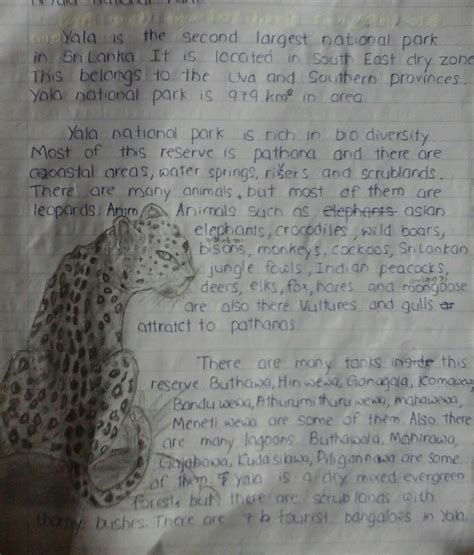 Yala National Park
Yala is the second largest national park
in Sri Lanka It is located in South East dry zone
This belongs to the Uva and Southern provinces.
Yala national park is 979 km² in area
Yala national park is rich in bio diversity
Most of this reserve is pathana and there are
coastal areas, water springs, rivers and scrublands.
There are many animals, but most of them are
leopards. Anim Animals such as elephants asian
elephants, crocodiles, wild boars,
bisons, monkeys, cockoos, Sri Lankan
jungle fowls, Indian peacocks,
deers, elks, fox, hares and mongoose
are also there Vultures and gulls
attratct to pathanas
There are many tanks inside this
reserve. Buthawa, Hin wewa, Gonagala, Komawa,
Bandu wewa, Athurumithuru wewa, mahawewa,
Meneti wewa are some of them. Also there
are many lagoons. Buthawala, Mahirawa,
Gajabawa, Kuda silawa, Piligannawa are some
of them. Yala is a dry mixed evergreen
forest, but there are scrublands with
thorny bushes. There are 7 b tourist bangaloes in Yala.